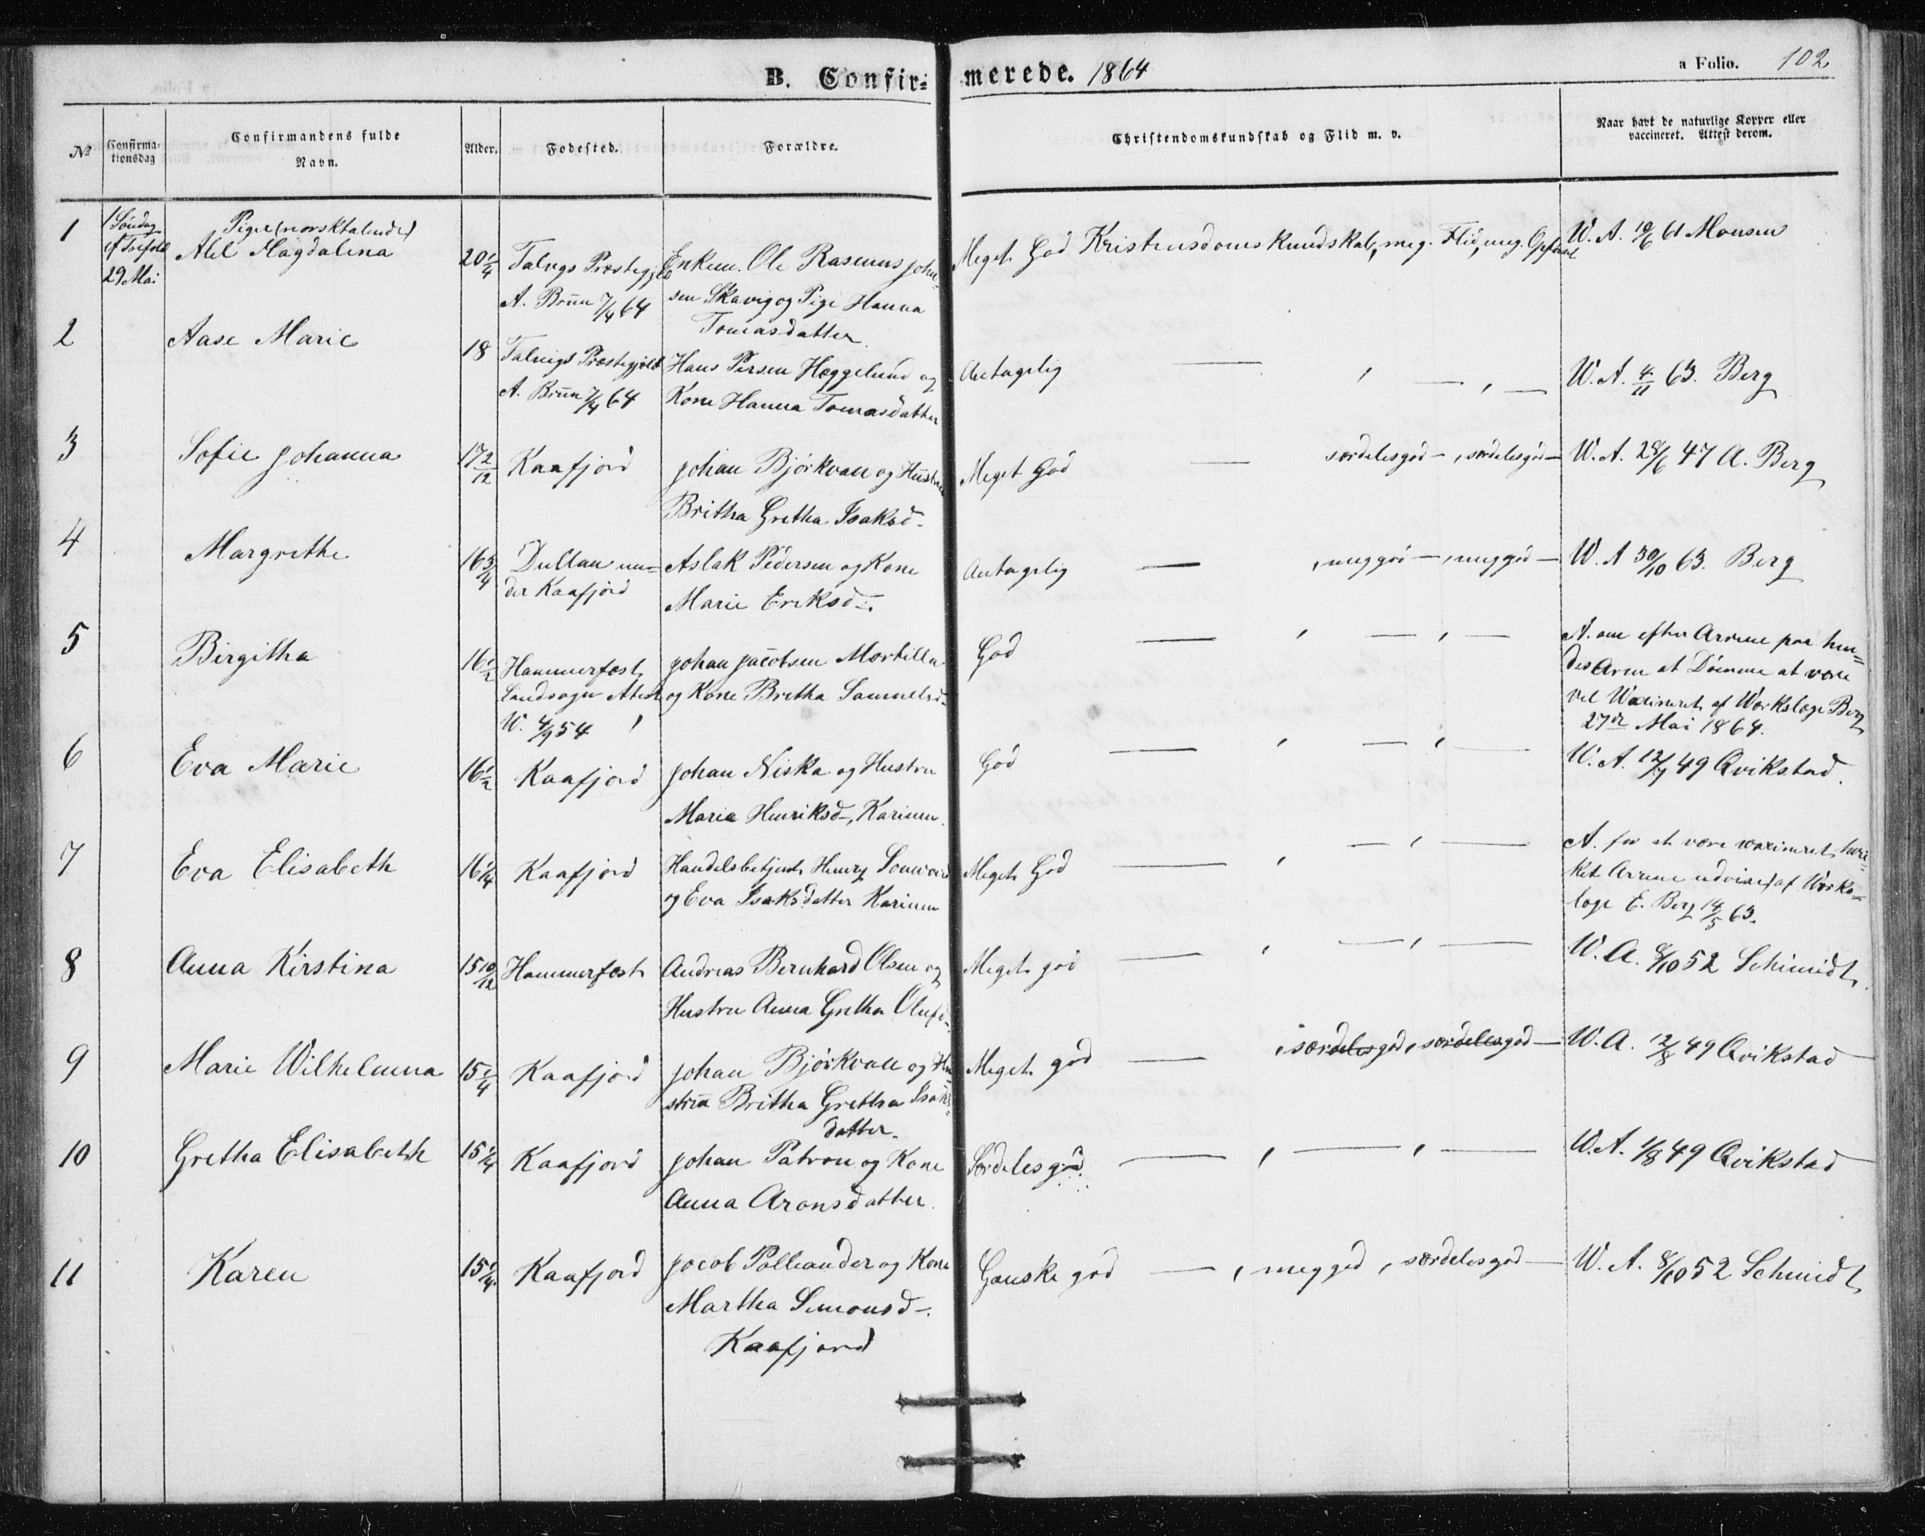 B. Confir- merede. 1864
a Folio. 102
No Confirma-tionsdag Confirmandens fulde Navn. Alder. Fødested. Forældre. Christendomskundskab og Flid m. v. Naar havt de naturlige Kopper eller vaccineret. Attest derom.
Piger (norsktalende)
1 1 Søndag ef Trefold 29 Mai Abel Magdalena 20 1/4 Talvigs Præstegjeld Enkem. Ole Rasmus Johan- Meget God Kristendoms Kundskab, meg. Flid, meg. Opførsel W. A. 19/6 61 Monsen
A. Brun 7/4 64 sen Skavig og Pige Hanna
Tomasdatter
2 Aase Marie 18 Talvigs Præstegjeld Hans Persen Hæggelund og Antagelig — , — , — W. A. 4/11 63. Berg
A. Brun 7/4 64 Kone Hanna Tomasdatter
3 Sofie Johanna 17 2/12 Kaafjord Johan Bjørkvan og Hustru Meget God — særdelesgod — , særdelesgod — W. A. 28/6 47 A. Berg
Britha Gretha Isaksd-
4 Margrethe 16 3/4 Dullan un- Aslak Pedersen og Kone Antagelig — , meggod — , meggod — W. A 30/10 63. Berg
der Kaafjord Marie Eriksd-.
5 Birgitha 16 1/2 Hammerfest Johan Jacobsen Mortilla God — , — , — A. om efter Arrene paa hen-
Landsogn Atest og Kone Bretha Samuelsd- des Arm at Dømme at være
W. 4/9 54 vel Waxineret af Værkslæge Berg
27de Mai 1864.
6 Eva Marie 16 1/2 Kaafjord Johan Niska og Hustru God — , — , — W. A. 12/7 49 Qvikstad.
Maria Henriksd-, Karinen.
7 Eva Elisabeth 16 1/4 Kaafjord Handelsbetjent Henry Meget God — , — , — A. for at være waxineret hvil-
og Eva Isaksdatter Karinen ket Arrene udvise, af Værks-
læge E. Berg 14/5 63.
8 Anna Kirstina 15 10/12 Hammerfest Andreas Bernhard Olsen og Meget god — , — , — W. A. 8/10 52 Schmidt.
Hustru Anna Gretha Olufsd-
9 Marie Wilhelmina 15 1/4 Kaafjord Johan Bjørkvan og Hu- Meget god — , særdelesgod, særdelesgod — W. A. 12/8 49 Qvikstad
strua Britha Gretha Isaks-
datter.
10 Gretha Elisabeth 15 1/4 Kaafjord Johan Patron og Kone Særdelesgod. — , — , — W. A. 1/8 49 Qvikstad
Anna Aronsdatter.
11 Karen 15 1/4 Kaafjord Jacob Polleander og Kone Ganske god — , meggod , særdelesgod — W. A. 8/10 52 Schmidt
Martha Simonsd-.
Kaafjord